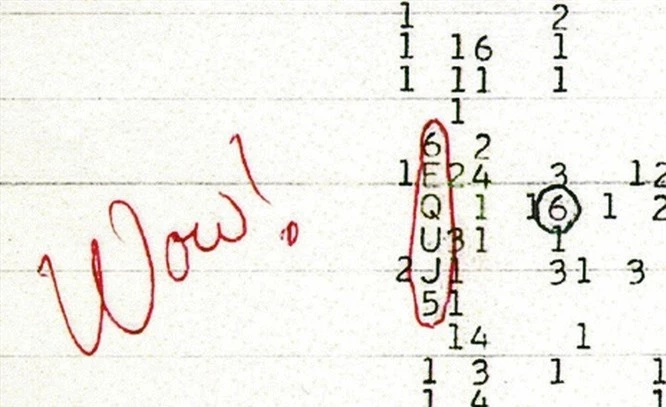 1 2
1 16 1
1 11 1
1
6 2
1 E 24 3 12
Q 1 1 6 1 2
Wow!
U 31 1
2 J 1 31 3
5 1
14 1
1 3 1 1
1 4 1